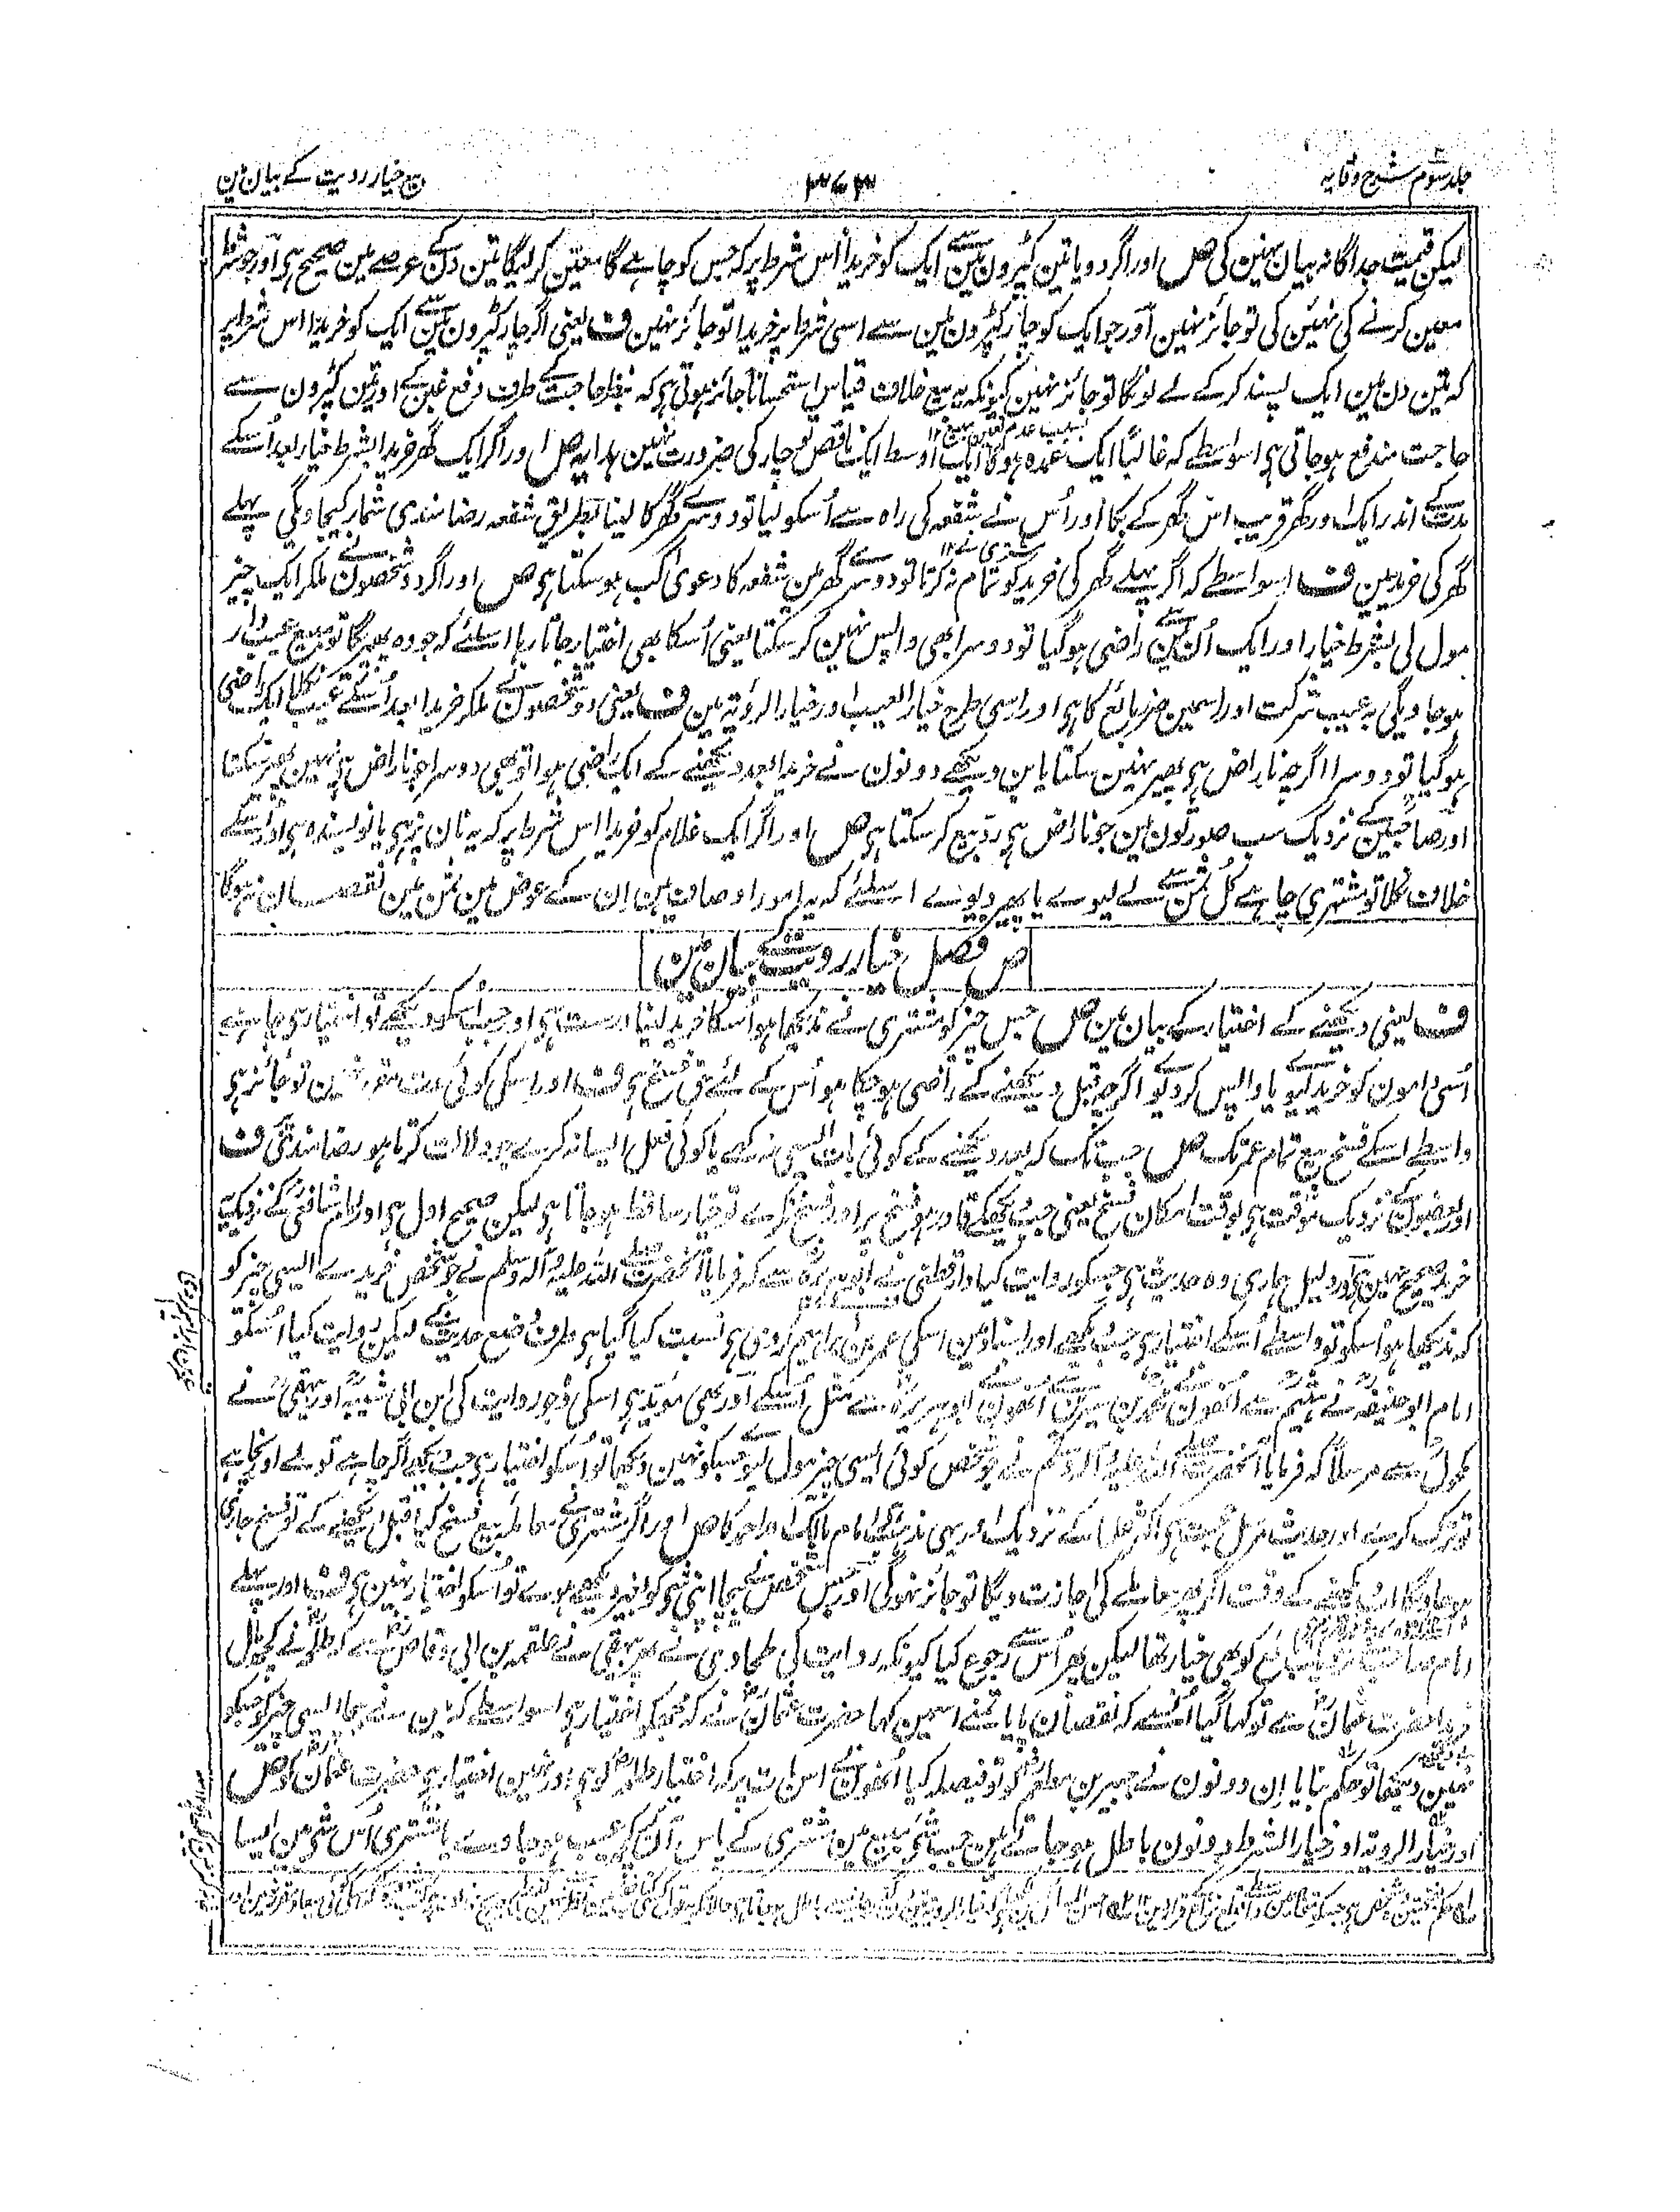 جلد سوم شرح وقایہ
۳۷۳
بیع خیار رویت کے بیان مین
لیکن قیمت جداگانہ بیان نہین کی ص اور اگر دو یا تین کپڑون مین سے ایک کو خریدا اس شرط پر کہ جس کو چاہے گا معین کر لیگا تین دن کے عرصے مین صحیح ہی اور جو شرط
معین کرنے کی نہین کی تو جائز نہین اور جو ایک کو چار کپڑون مین سے اسی شرط پر خریدا تو جائز نہین ف یعنی اگر چار کپڑون مین سے ایک کو خریدا اس شرط پر
کہ تین دن مین ایک پسند کر کے لے لونگا تو جائز نہین کیونکہ یہ بیع خلاف قیاس استحسانا جائز ہوتی ہی کہ بنظر حاجت کے طرف دفع غبن کے اور تین کپڑون سے
حاجت مندفع ہو جاتی ہی اسواسطے کہ غالبًا ایک عمدہ ہوگا ایک اوسط ایک ناقص تو چار کی ضرورت نہین ہدایہ ص اور اگر ایک گھر خریدا بشرط خیار بعد اُسکے
مدت کے اندر ایک اور گھر قریب اس گھر کے بکا اور اُس نے شفعہ کی راہ سے اُسکو لیا تو دوسرے گھر کا لینا بطریق شفعہ رضامندی شمار کیجاویگی پہلے
گھر کی خرید مین ف اسواسطے کہ اگر پہلے گھر کی خرید کو تمام نہ کرتا تو دوسرے گھر مین شفعہ کا دعوی کب ہو سکتا ہی ص اور اگر دو شخصون نے ملکر ایک چیز
مول لی بشرط خیار اور ایک اُن مین سے راضی ہو گیا تو دوسرا بھی واپس نہین کر سکتا یعنی اُسکا بھی اختیار جاتا رہا اسلئے کہ جو وہ پھیریگا تو مبیع عیب دار
ہو جاویگی بہ عیب شرکت اور اسمین ضرر بائع کا ہی اور اسی طرح خیار العیب اور خیار الرؤیۃ مین ف یعنی دو شخصون نے ملکر خریدا بعد اُسکے عیب نکلا ایک راضی
ہو گیا تو دوسرا اگرچہ ناراض ہی پھیر نہین سکتا یا بن دیکھے دونون نے خریدا بعد دیکھنے کے ایک راضی ہوا تو بھی دوسرا جو ناراض ہی نہین پھیر سکتا
اور صاحبین کے نزدیک سب صورتون مین جو ناراض ہی رد بیع کر سکتا ہی ص اور اگر ایک غلام کو خریدا اس شرط پر کہ یہ نان پز ہی یا نویسندہ ہی اور اُسکے
خلاف نکلا تو مشتری چاہے کل ثمن سے لے لیوے یا پھیر دیوے اسلئے کہ یہ امور اوصاف ہین ان کے عوض مین ثمن مین نقصان نہوگا
ص فصل خیار رویت کے بیان مین
ف یعنی دیکھنے کے اختیار کے بیان مین ص جس چیز کو مشتری نے ندیکھا ہو اُسکا خرید لینا درست ہی اور جب اُسکو دیکھے تو اختیار ہی چاہے
اُسی دامون کو خرید لیوے یا واپس کر دیوے اگرچہ قبل دیکھنے کے راضی ہو چکا ہو اُس کے لئے حق فسخ ہی ف اور اسکی کوئی مدت مقرر نہین تو جائز ہی
واسطے اسکے فسخ بیع تمام عمر تک ص جب تک کہ بعد دیکھنے کے کوئی بات ایسی نہ کہے یا کوئی فعل ایسا نہ کرے جو دلالت کرتا ہو رضامندی کی ف
اور بعضون کے نزدیک موقت ہی بوقت امکان فسخ یعنی جب دیکھکے قادر ہو فسخ پر اور فسخ نکرے تو خیار ساقط ہو جاتا ہی لیکن صحیح اول ہی اور امام شافعی کے نزدیک
خرید صحیح نہین ہی اور دلیل ہماری وہ حدیث ہی جسکو روایت کیا دارقطنی نے ابو ہریرہ سے کہ فرمایا آنحضرت صلے اللہ علیہ وآلہ وسلم نے جو شخص خریدے ایسی چیز کو
کہ ندیکھا ہو اُسکو تو واسطے اُسکے اختیار ہی جب دیکھے اور اسناد مین اسکی عمر بن ابراہیم کردی ہی نسبت کیا گیا ہی طرف وضع حدیث کے لیکن روایت کیا اُسکو
امام ابو حنیفہ نے ہیثم سے انھون نے محمد بن سیرین سے انھون نے ابو ہریرہ سے مثل اُسکے اور بھی مؤید ہی اسکی وہ جو روایت کی ابن ابی شیبہ اور بیہقی نے
مکحول سے مرسلاً کہ فرمایا آنحضرت صلے اللہ علیہ وآلہ وسلم نے جو شخص کوئی ایسی چیز مول لیوے جسکو نہین دیکھا تو اُسکو اختیار ہی جب دیکھے اگر چاہے تو لے اور چاہے
تو ترک کرے اور حدیث مرسل حجت ہی اکثر علما کے نزدیک اور یہی مذہب ہی امام مالک اور احمد کا ص اور اگر مشتری نے معاملہ بیع فسخ کیا قبل دیکھنے کے تو فسخ جاری
ہو جاویگا اب دیکھنے کے وقت اگر پھر معاملے کی اجازت دیگا تو جائز نہوگی اور جس شخص نے بیچا اپنی شی کو بغیر دیکھے ہوئے تو اُسکو اختیار نہین ہی ف اور پہلے
امام صاحب کے نزدیک بائع کو بھی خیار تھا لیکن پھر اُس سے رجوع کیا کیونکہ روایت کی طحاوی نے پھر بیہقی نے علقمہ بن ابی وقاص سے کہ طلحہ نے کچھ مال
خریدا حضرت عثمان سے تو کہا گیا اُنسے کہ نقصان پایا تمنے اسمین کہا حضرت عثمان نے کہ مجھکو اختیار ہی اسواسطے کہ مین نے بیچا ایسی چیز کو جسکو
نہین دیکھا تو حکم بنایا ان دونون نے جبیر بن مطعم کو تو فیصلہ کیا اُنھون نے اس بات پر کہ اختیار طلحہ کو ہی اور نہین اختیار ہی حضرت عثمان کو ص
اور خیار الرویۃ اور خیار الشرط دونون باطل ہو جاتے ہین جب شی مبیع مین مشتری کے پاس آن کر عیب ہو جاوے یا مشتری اُس شی مین ایسا